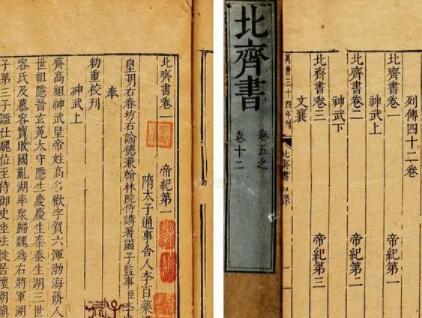 北齊書卷一 帝紀第一
隋太子通事舍人李百藥
皇明右春坊右諭德兼翰林院侍講署國子監事臣李
奉
勑重校刊
神武上
齊高祖神武皇帝姓高名歡字賀六渾渤海蓨人
世祖隱晉玄菟太守隱生慶慶生泰泰生湖三世
容氏及慕容寶敗國亂湖率衆歸魏爲右將軍湖
子第三子謐仕魏位至侍御史坐法徙居懷朔鎮
列傳四十二卷
北齊書卷一 帝紀第一
神武上
北齊書卷二 帝紀第二
神武下
北齊書卷三 帝紀第三
文襄
萬曆三十四年刊 北齊書 目錄
北齊書
卷五之
卷十二